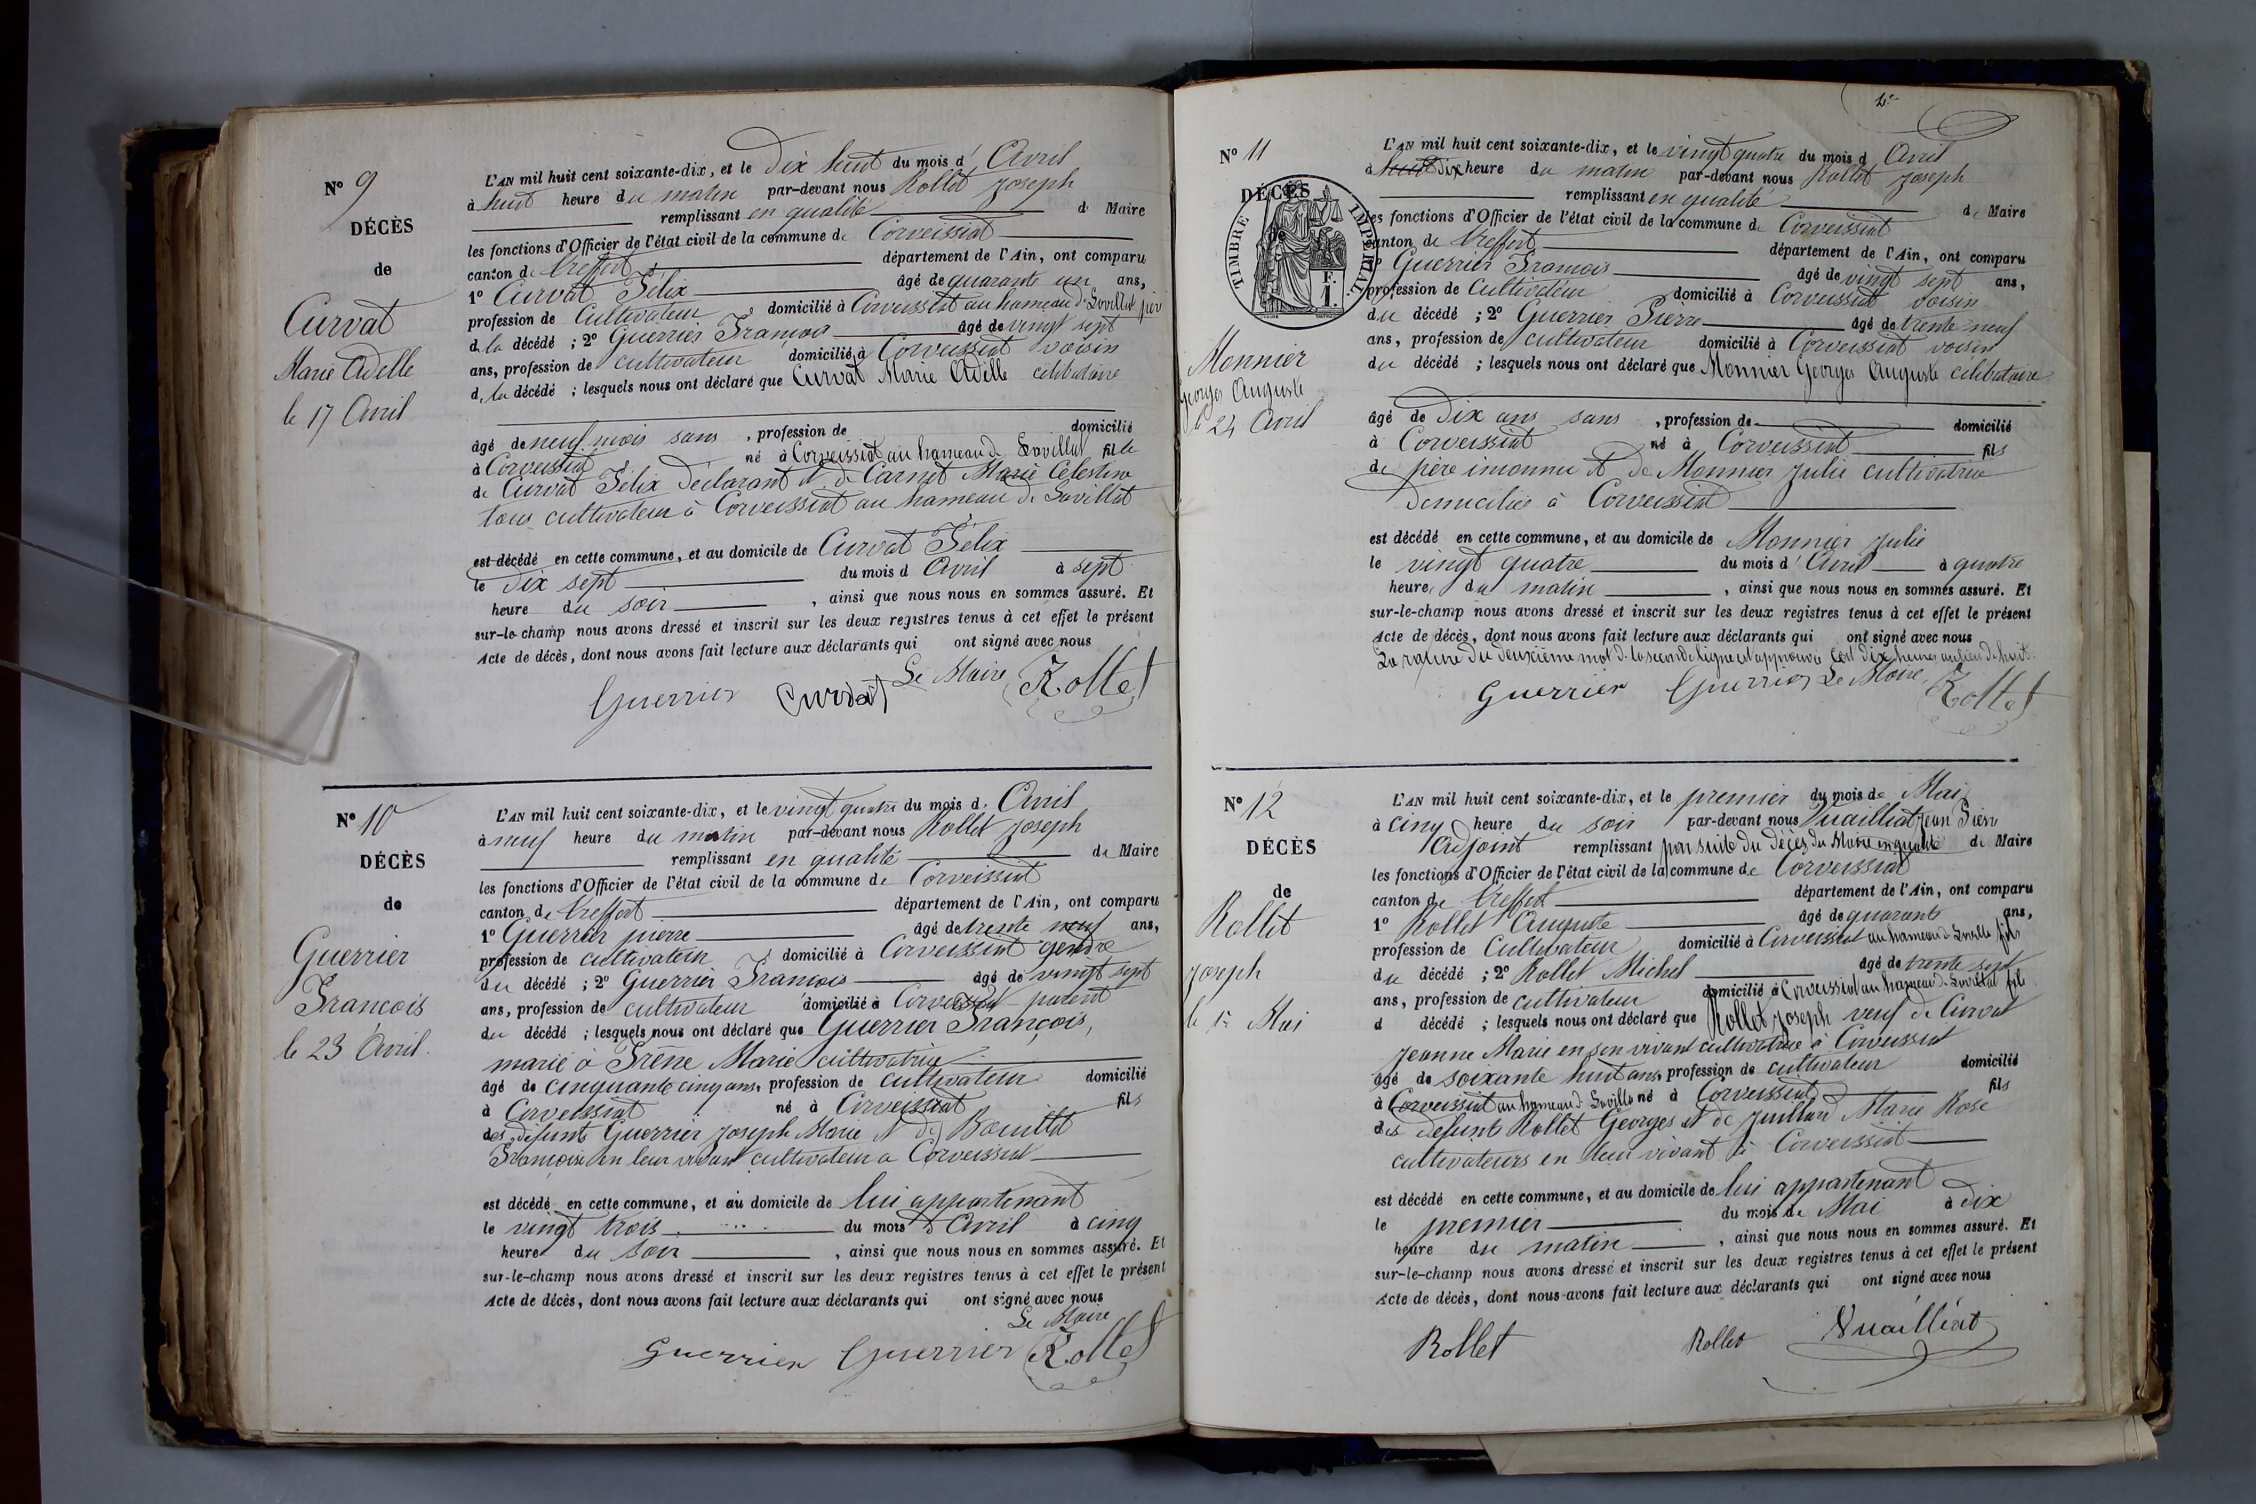 Nº 9
DÉCÈS
de
Curvat
Marie Adelle
le 17 Avril
L'AN mil huit cent soixante-dix, et le dix huit du mois d' Avril
à huit heure du matin par-devant nous Rollet Joseph
remplissant en qualité de Maire
les fonctions d'Officier de l'état civil de la commune de Corveissiat
canton de Treffort département de l'Ain, ont comparu
1º Curvat Félix âgé de quarante un ans,
profession de Cultivateur domicilié à Corveissiat au hameau de Lavillat père
d la décédé ; 2º Guerrier François âgé de vingt sept
ans, profession de cultivateur domicilié à Corveissiat voisin
d la décédé ; lesquels nous ont déclaré que Curvat Marie Adelle célibataire
âgé de neuf mois sans , profession de domicilié
à Corveissiat né à Corveissiat au hameau de Lavillat fille
de Curvat Félix déclarant et de Carnet Marie Célestine
tous cultivateur à Corveissiat au hameau de Lavillat
est décédé en cette commune, et au domicile de Curvat Félix
le dix sept du mois d Avril à sept
heure du soir , ainsi que nous nous en sommes assuré. Et
sur-le-champ nous avons dressé et inscrit sur les deux registres tenus à cet effet le présent
Acte de décès, dont nous avons fait lecture aux déclarants qui ont signé avec nous
Le Maire
Guerrier Curvat Rollet
Nº 10
DÉCÈS
de
Guerrier
François
le 23 Avril.
L'AN mil huit cent soixante-dix, et le vingt quatre du mois d. Avril
à neuf heure du matin par-devant nous Rollet Joseph
remplissant en qualité de Maire
les fonctions d'Officier de l'état civil de la commune de Corveissiat
canton de Treffort département de l'Ain, ont comparu
1º Guerrier pierre âgé de trente neuf ans,
profession de cultivateur domicilié à Corveissiat gendre
du décédé ; 2º Guerrier François âgé de vingt sept
ans, profession de cultivateur domicilié à Corveissiat parent
du décédé ; lesquels nous ont déclaré que Guerrier François,
marié à Irène Marie cultivatrice
âgé de cinquante cinq ans, profession de cultivateur domicilié
à Corveissiat né à Corveissiat fils
des défunts Guerrier Joseph Marie et de Bouillet
Françoise en leur vivant cultivateur a Corveissiat
est décédé en cette commune, et au domicile de lui appartenant
le vingt trois du mois d Avril à cinq
heure du soir , ainsi que nous nous en sommes assuré. Et
sur-le-champ nous avons dressé et inscrit sur les deux registres tenus à cet effet le présent
Acte de décès, dont nous avons fait lecture aux déclarants qui ont signé avec nous
Le Maire
Guerrier Guerrier Rollet
Nº 11
DÉCÈS
TIMBRE IMPÉRIAL
F.
1.
Monnier
Georges Auguste
le 24 Avril
L'AN mil huit cent soixante-dix, et le vingt quatre du mois d Avril
à huit dix heure du matin par-devant nous Rollet Joseph
remplissant en qualité de Maire
les fonctions d'Officier de l'état civil de la commune de Corveissiat
canton de Treffort département de l'Ain, ont comparu
1º Guerrier François âgé de vingt sept ans,
profession de Cultivateur domicilié à Corveissiat voisin
du décédé ; 2º Guerrier Pierre âgé de trente neuf
ans, profession de cultivateur domicilié à Corveissiat voisin
du décédé ; lesquels nous ont déclaré que Monnier Georges Auguste célibataire
âgé de dix ans sans , profession de domicilié
à Corveissiat né à Corveissiat fils
de père inconnu et de Monnier Julie cultivatrice
domiciliée à Corveissiat
est décédé en cette commune, et au domicile de Monnier Julie
le vingt quatre du mois d' Avril à quatre
heure du matin , ainsi que nous nous en sommes assuré. Et
sur-le-champ nous avons dressé et inscrit sur les deux registres tenus à cet effet le présent
Acte de décès, dont nous avons fait lecture aux déclarants qui ont signé avec nous
La rature du deuxième mot de la seconde ligne est approuvée c'est dix heures au lieu de huit.
Guerrier Guerrier Le Maire, Rollet
Nº 12
DÉCÈS
de
Rollet
Joseph
le 1er Mai
L'AN mil huit cent soixante-dix, et le premier du mois de Mai
à cinq heure du soir par-devant nous Vuailliat Jean Pierre
Adjoint remplissant par suite du décès du Maire en qualité de Maire
les fonctions d'Officier de l'état civil de la commune de Corveissiat
canton de Treffort département de l'Ain, ont comparu
1º Rollet Auguste âgé de quarante ans,
profession de Cultivateur domicilié à Corveissiat au hameau de Lavillat fils
du décédé ; 2º Rollet Michel âgé de trente sept
ans, profession de cultivateur domicilié à Corveissiat au hameau de Lavillat fils
d décédé ; lesquels nous ont déclaré que Rollet Joseph veuf de Curvat
Jeanne Marie en son vivant cultivatrice à Corveissiat
âgé de soixante huit ans, profession de cultivateur domicilié
à Corveissiat au hameau de Lavillat né à Corveissiat fils
des défunts Rollet Georges et de Juillard Marie Rose
cultivateurs en leur vivant à Corveissiat
est décédé en cette commune, et au domicile de lui appartenant
le premier du mois de Mai à dix
heure du matin , ainsi que nous nous en sommes assuré. Et
sur-le-champ nous avons dressé et inscrit sur les deux registres tenus à cet effet le présent
Acte de décès, dont nous avons fait lecture aux déclarants qui ont signé avec nous
Rollet Rollet Vuailliat